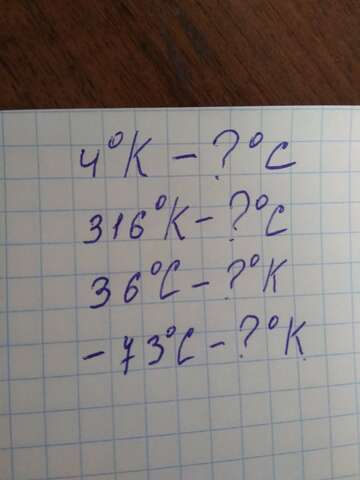 4°K – ?°C
316°K – ?°C
36°C – ?°K
– 73°C – ?°K